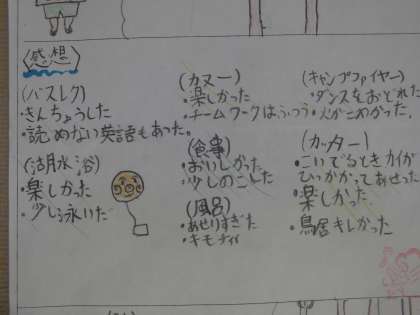 感想
(バスレク)
・きんちょうした
・読めない英語もあった。
(湖水浴)
・楽しかった
・少し泳いだ
(カヌー)
・楽しかった
・チームワークはふつう
(食事)
・おいしかった
・少しのこした
(風呂)
・あせりすぎた
・キモチイイ
(キャンプファイヤー)
・ダンスをおどれた
・火がこわかった。
(カッター)
・こいでるときカイが
ひっかかってあせった
・楽しかった
・鳥居キレかった